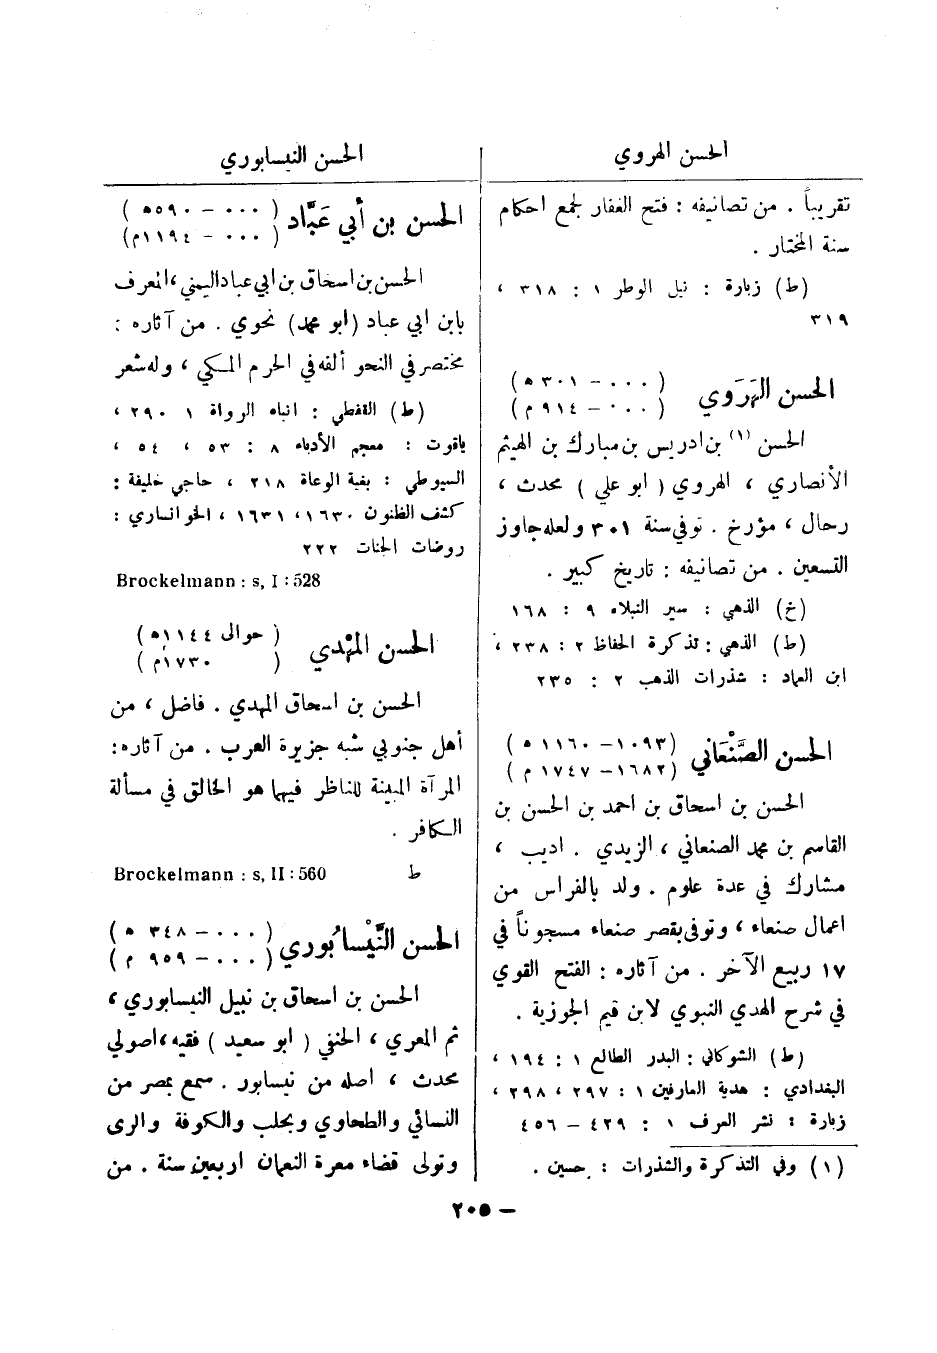 الحسن الهروي
تقريباً . من تصانيفه : فتح الغفار لجمع احكام
سنة المختار .
(ط) زبارة : نيل الوطر ١ : ٣١٨ ،
٣١٩
الحسن الهَرَوي ( ٠٠٠ – ٣٠١ ه )
( ٠٠٠ – ٩١٤ م )
الحسن (١) بن ادريس بن مبارك بن الهيثم
الأنصاري ، الهروي ( ابو علي ) محدث ،
رحال ، مؤرخ . توفي سنة ٣٠١ ولعله جاوز
التسعين . من تصانيفه : تاريخ كبير .
(خ) الذهبي : سير النبلاء ٩ : ١٦٨
(ط) الذهبي : تذكرة الحفاظ ٢ : ٢٣٨ ،
ابن العماد : شذرات الذهب ٢ : ٢٣٥
الحسن الصَّنْعاني (١٠٩٣ – ١١٦٠ ه )
(١٦٨٢ – ١٧٤٧ م )
الحسن بن اسحاق بن احمد بن الحسن بن
القاسم بن محمد الصنعاني ، الزيدي . اديب ،
مشارك في عدة علوم . ولد بالفراس من
اعمال صنعاء ، وتوفي بقصر صنعاء مسجوناً في
١٧ ربيع الآخر . من آثاره : الفتح القوي
في شرح الهدي النبوي لابن قيم الجوزية .
(ط) الشوكاني : البدر الطالع ١ : ١٩٤ ،
البغدادي : هدية العارفين ١ : ٢٩٧ ، ٢٩٨ ،
زبارة : نشر العرف ١ : ٤٢٩ – ٤٥٦
(١) وفي التذكرة والشذرات : حسين .
الحسن النيسابوري
الحسن بن أبي عَبَّاد ( ٠٠٠ – ٥٩٠ه )
( ٠٠٠ – ١١٩٤م)
الحسن بن اسحاق بن ابي عباد اليمني ، المعرف
بابن ابي عباد (ابو محمد) نحوي . من آثاره :
مختصر في النحو ألفه في الحرم المكي ، وله شعر
(ط) القفطي : انباه الرواة ١ ٢٩٠ ،
ياقوت : معجم الأدباء ٨ : ٥٣ ، ٥٤ ،
السيوطي : بغية الوعاة ٢١٨ ، حاجي خليفة :
كشف الظنون ١٦٣٠ ، ١٦٣١ ، الخوانساري :
روضات الجنات ٢٢٢
Brockelmann : s, I : 528
الحسن المَهْدي ( حوالى ١١٤٤ه )
( ١٧٣٠م )
الحسن بن اسحاق المهدي . فاضل ، من
أهل جنوبي شبه جزيرة العرب . من آثاره :
المرآة المبينة للناظر فيها هو الخالق في مسألة
الكافر .
ط Brockelmann : s, II : 560
الحسن النَّيْسابُوري ( ٠٠٠ – ٣٤٨ ه )
( ٠٠٠ – ٩٥٩ م )
الحسن بن اسحاق بن نبيل النيسابوري ،
ثم المعري ، الحنفي ( ابو سعيد ) فقيه ، اصولي
محدث ، اصله من نيسابور . سمع بمصر من
النسائي والطحاوي وبحلب والكوفة والرى
وتولى قضاء معرة النعمان اربعين سنة . من
– ٢٠٥